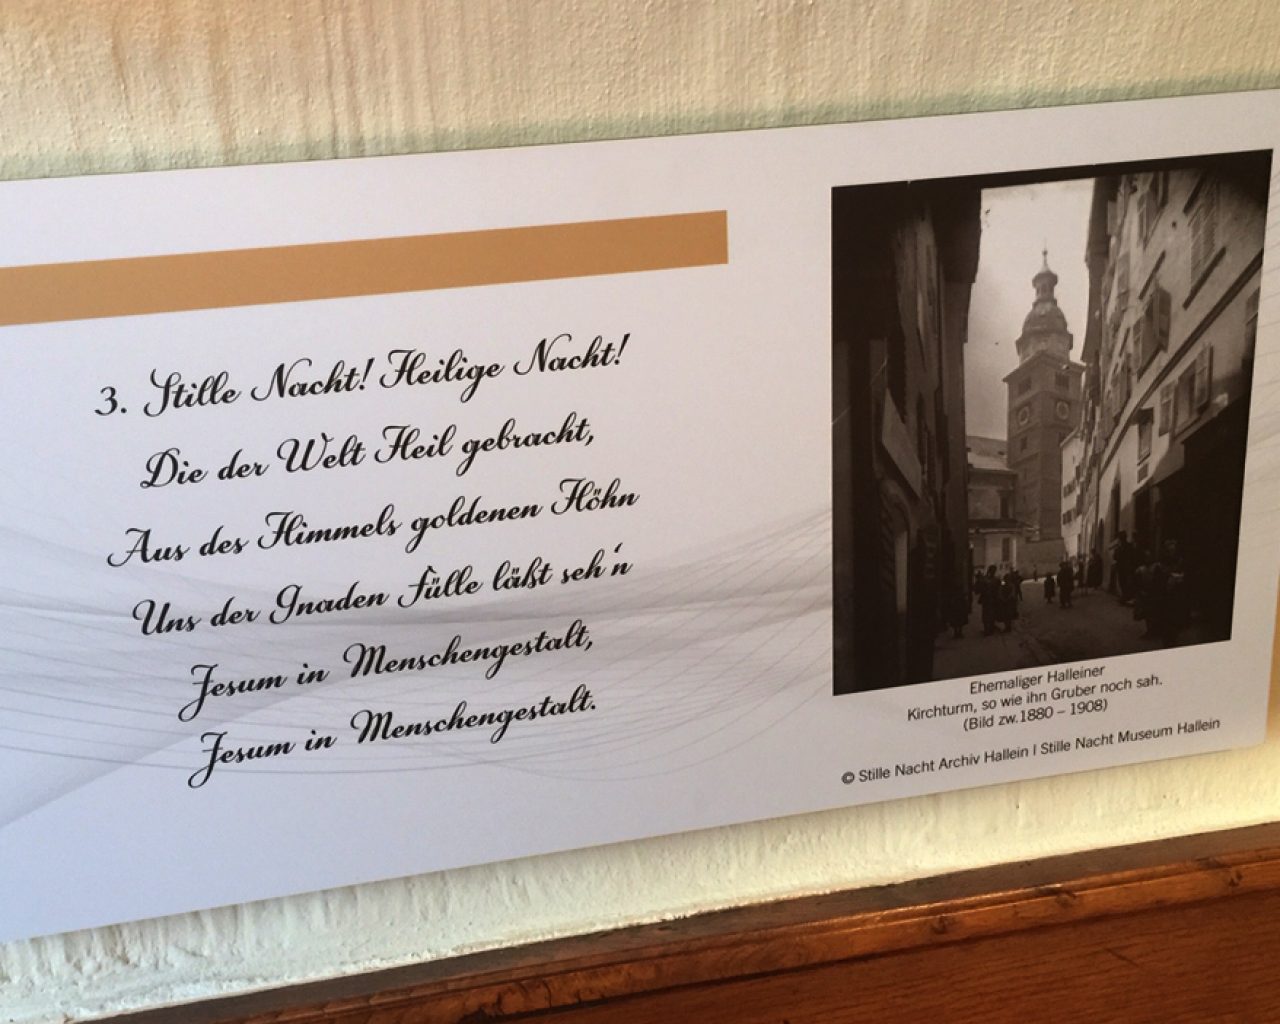 3. Stille Nacht! Heilige Nacht!
Die der Welt Heil gebracht,
Aus des Himmels goldenen Höhn
Uns der Gnaden Fülle läßt seh'n
Jesum in Menschengestalt,
Jesum in Menschengestalt.
Ehemaliger Halleiner
Kirchturm, so wie ihn Gruber noch sah.
(Bild zw.1880 – 1908)
© Stille Nacht Archiv Hallein I Stille Nacht Museum Hallein